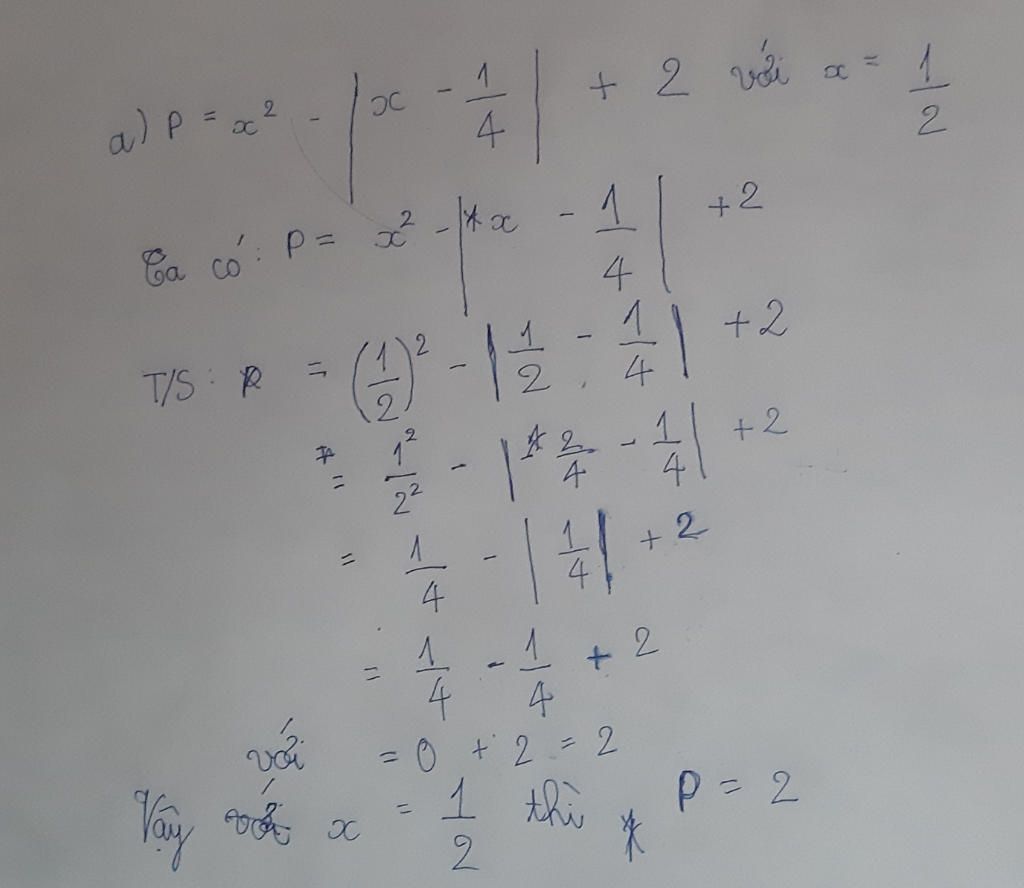 a) P = x² - |x - 1/4| + 2 với x = 1/2
Ta có: P = x² - |x - 1/4| + 2
T/S: P = (1/2)² - |1/2 - 1/4| + 2
= 1²/2² - |2/4 - 1/4| + 2
= 1/4 - |1/4| + 2
= 1/4 - 1/4 + 2
= 0 + 2 = 2
Vậy với x = 1/2 thì P = 2